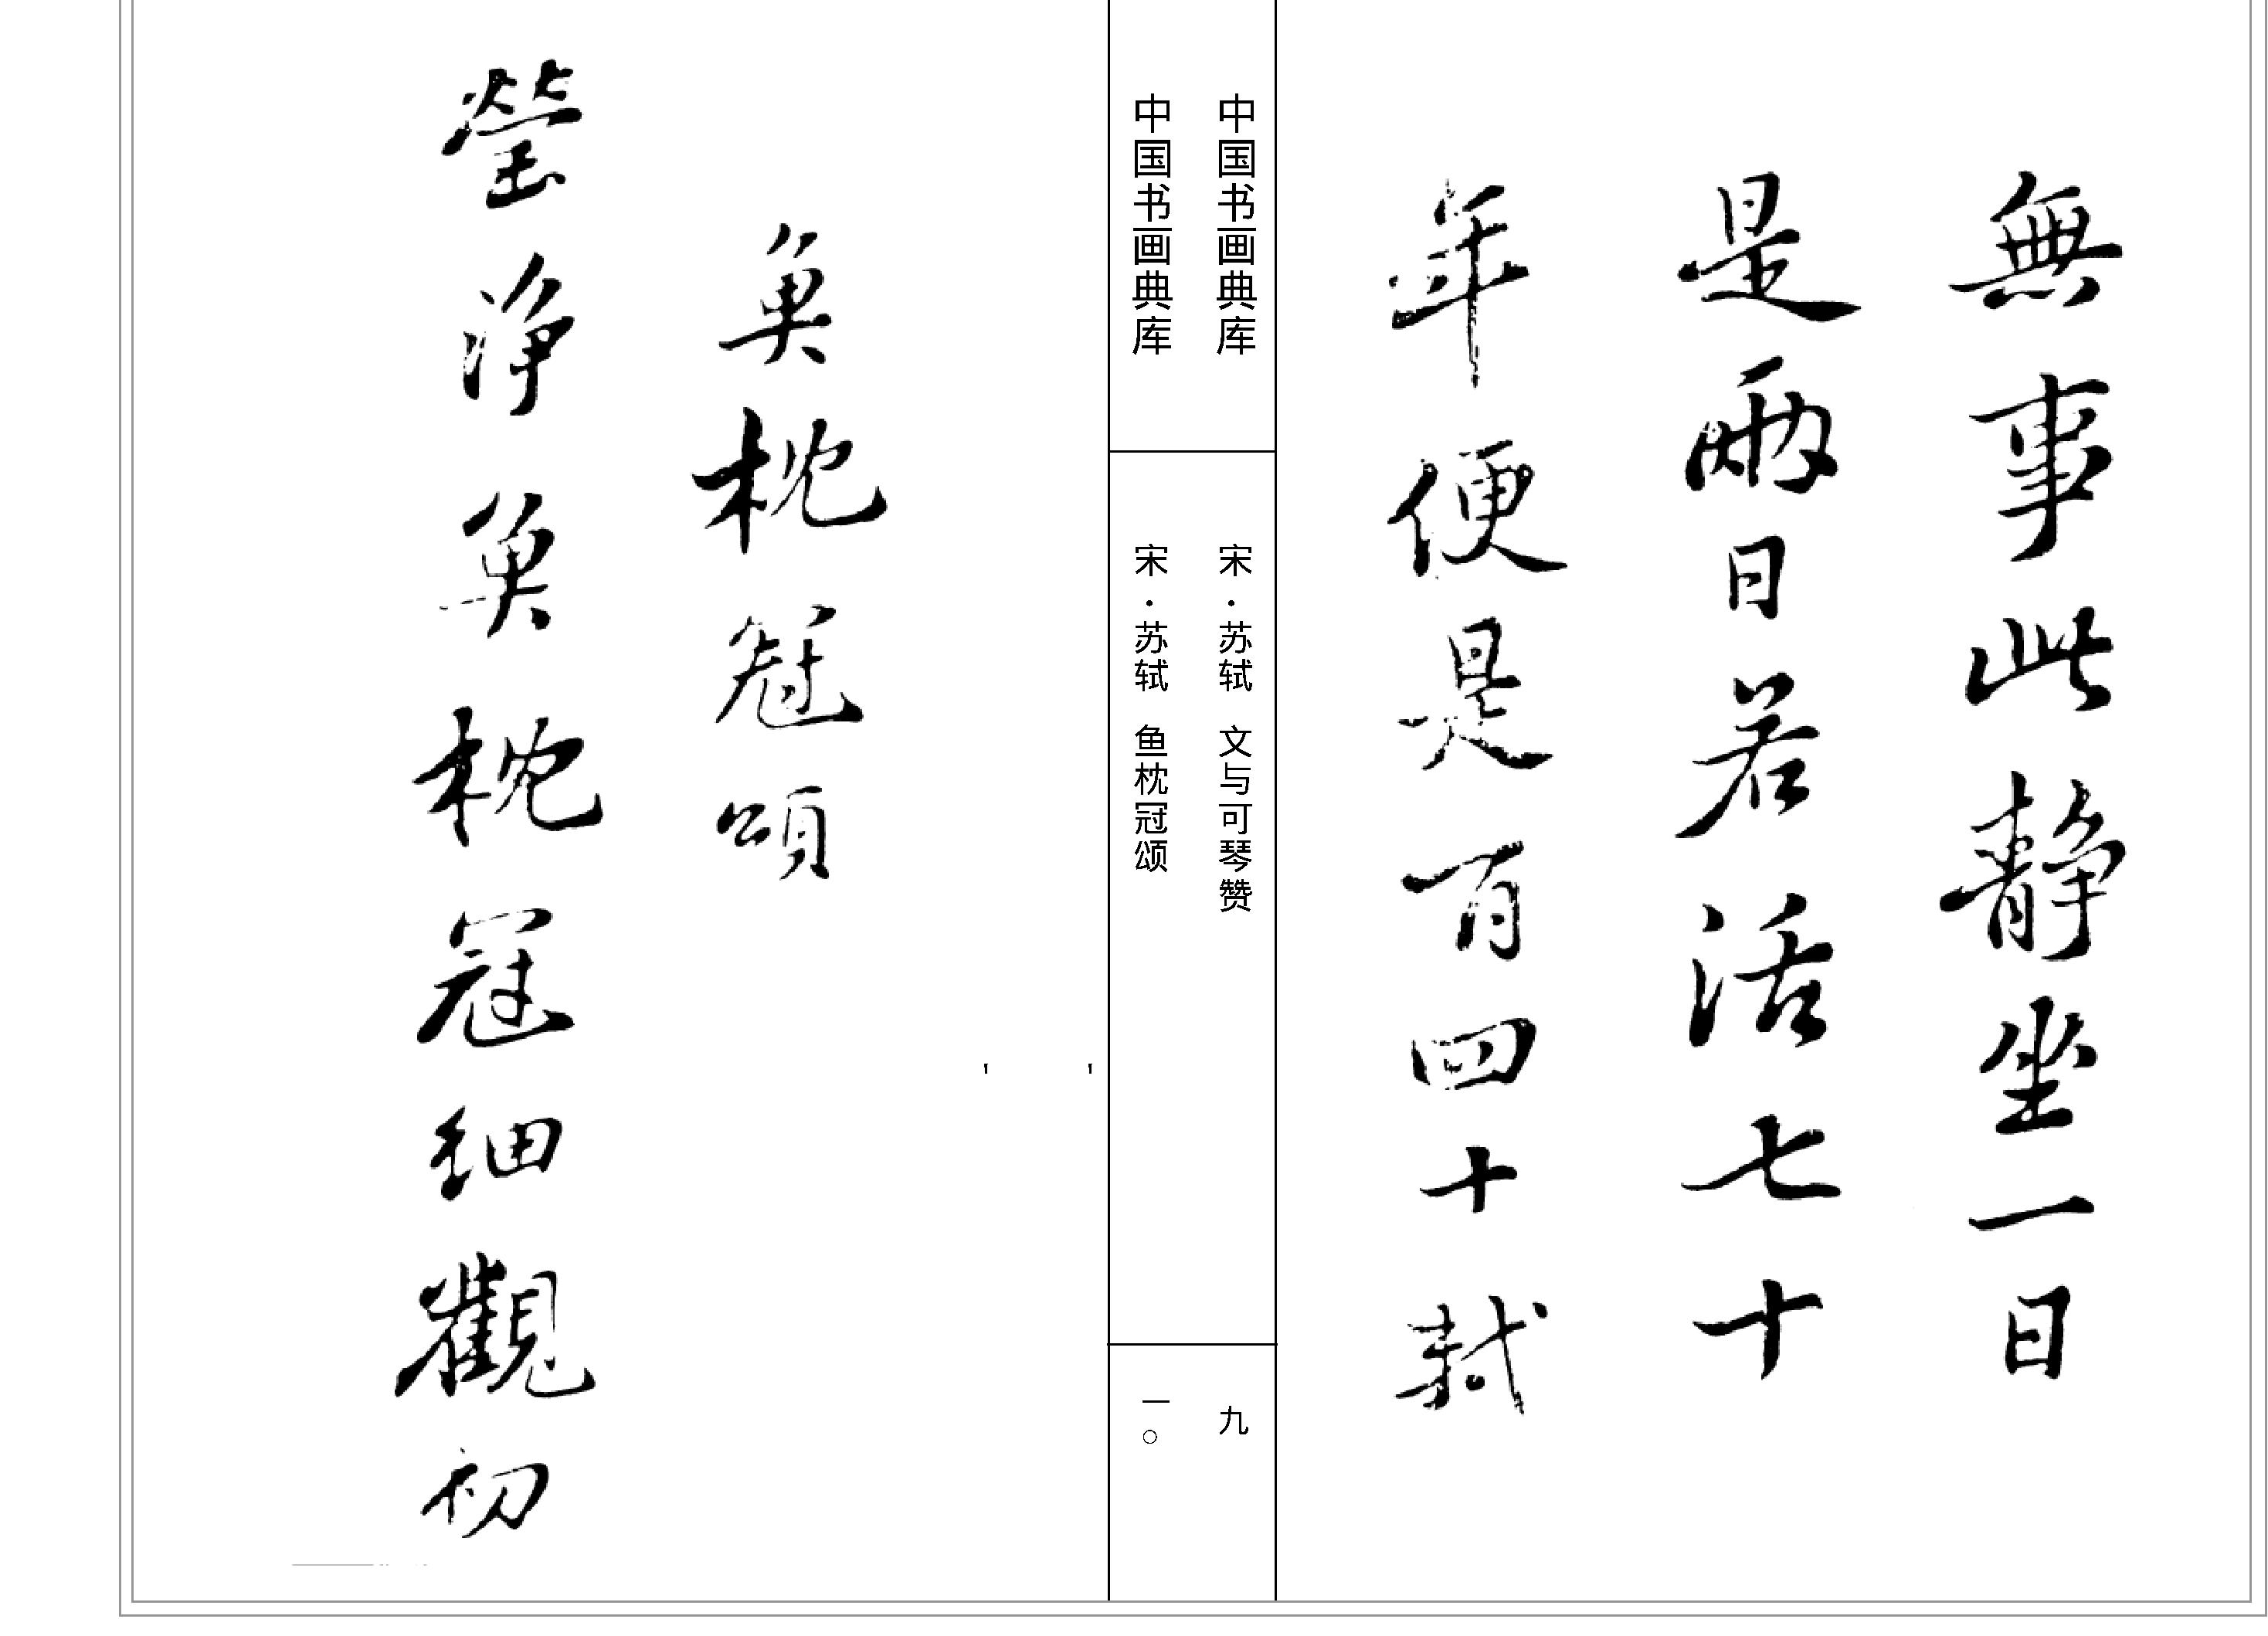 無事此靜坐一日
是兩日若活七十
年便是百四十軾
中国书画典库
宋·苏轼 文与可琴赞
九
中国书画典库
宋·苏轼 鱼枕冠颂
一〇
魚枕冠頌
瑩淨魚枕冠細觀初